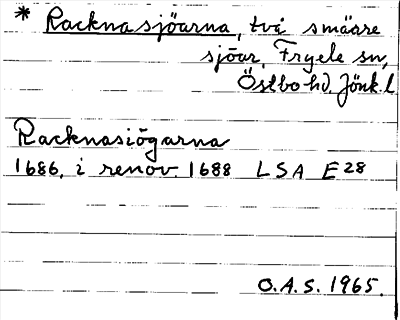 * Racknasjöarna, två smäare
sjöar, Fryele sn,
Östbo hd, Jönk. l
Racknasiögarna
1686, i renov. 1688 LSA E 28
O.A.S. 1965.